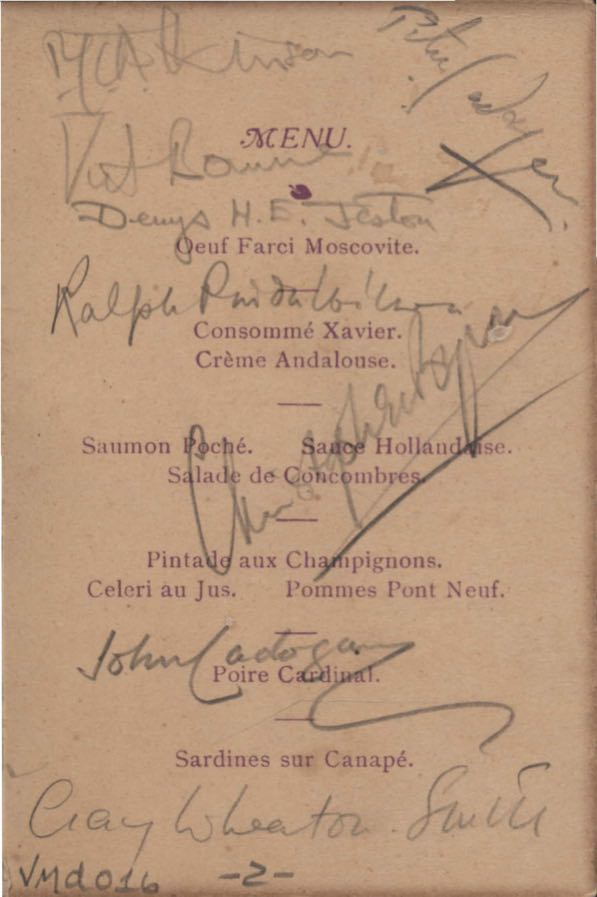 M. Atkinson
Peter Cadogan
MENU.
Denys H. E. Teston
Oeuf Farci Moscovite.
Ralph
Consommé Xavier.
Crème Andalouse.
Christopher
Saumon Poché. Sauce Hollandaise.
Salade de Concombres.
Pintade aux Champignons.
Celeri au Jus. Pommes Pont Neuf.
John Cadogan
Poire Cardinal.
Sardines sur Canapé.
Wheaton-Smith
VMd016 -2-